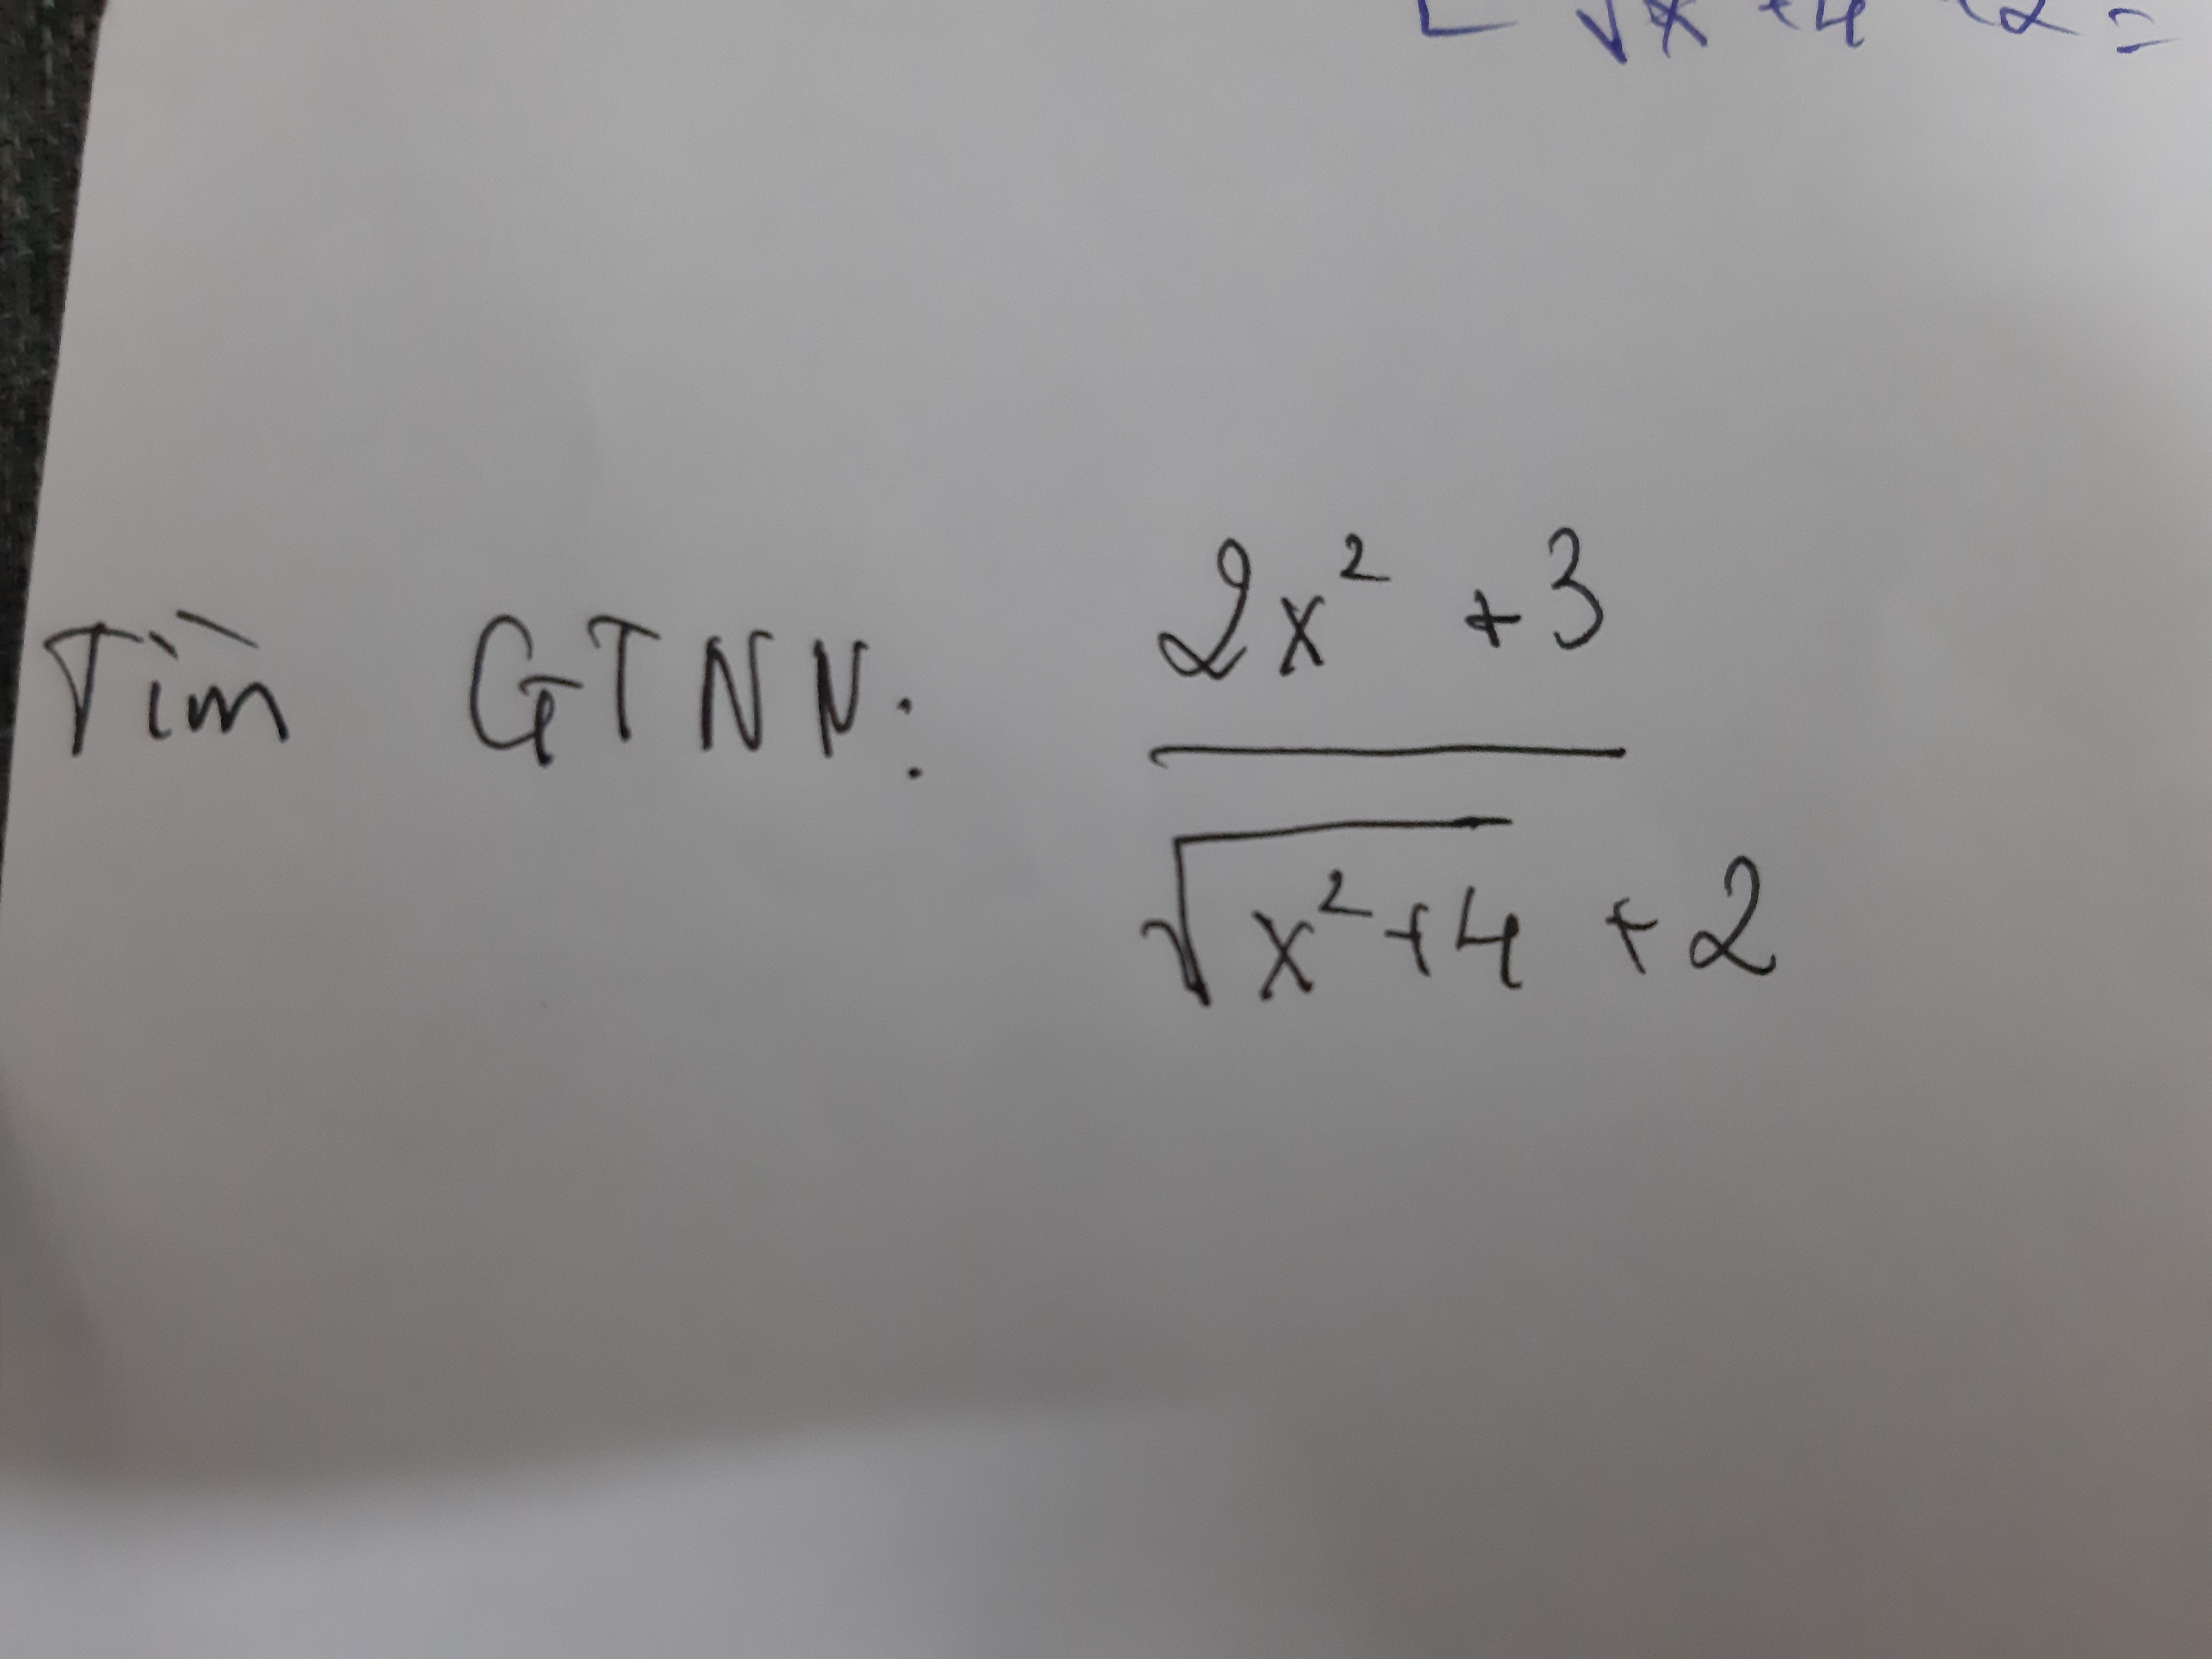 √x +4 +2 =
Tìm GTNN: 2x² + 3
√x²+4 + 2